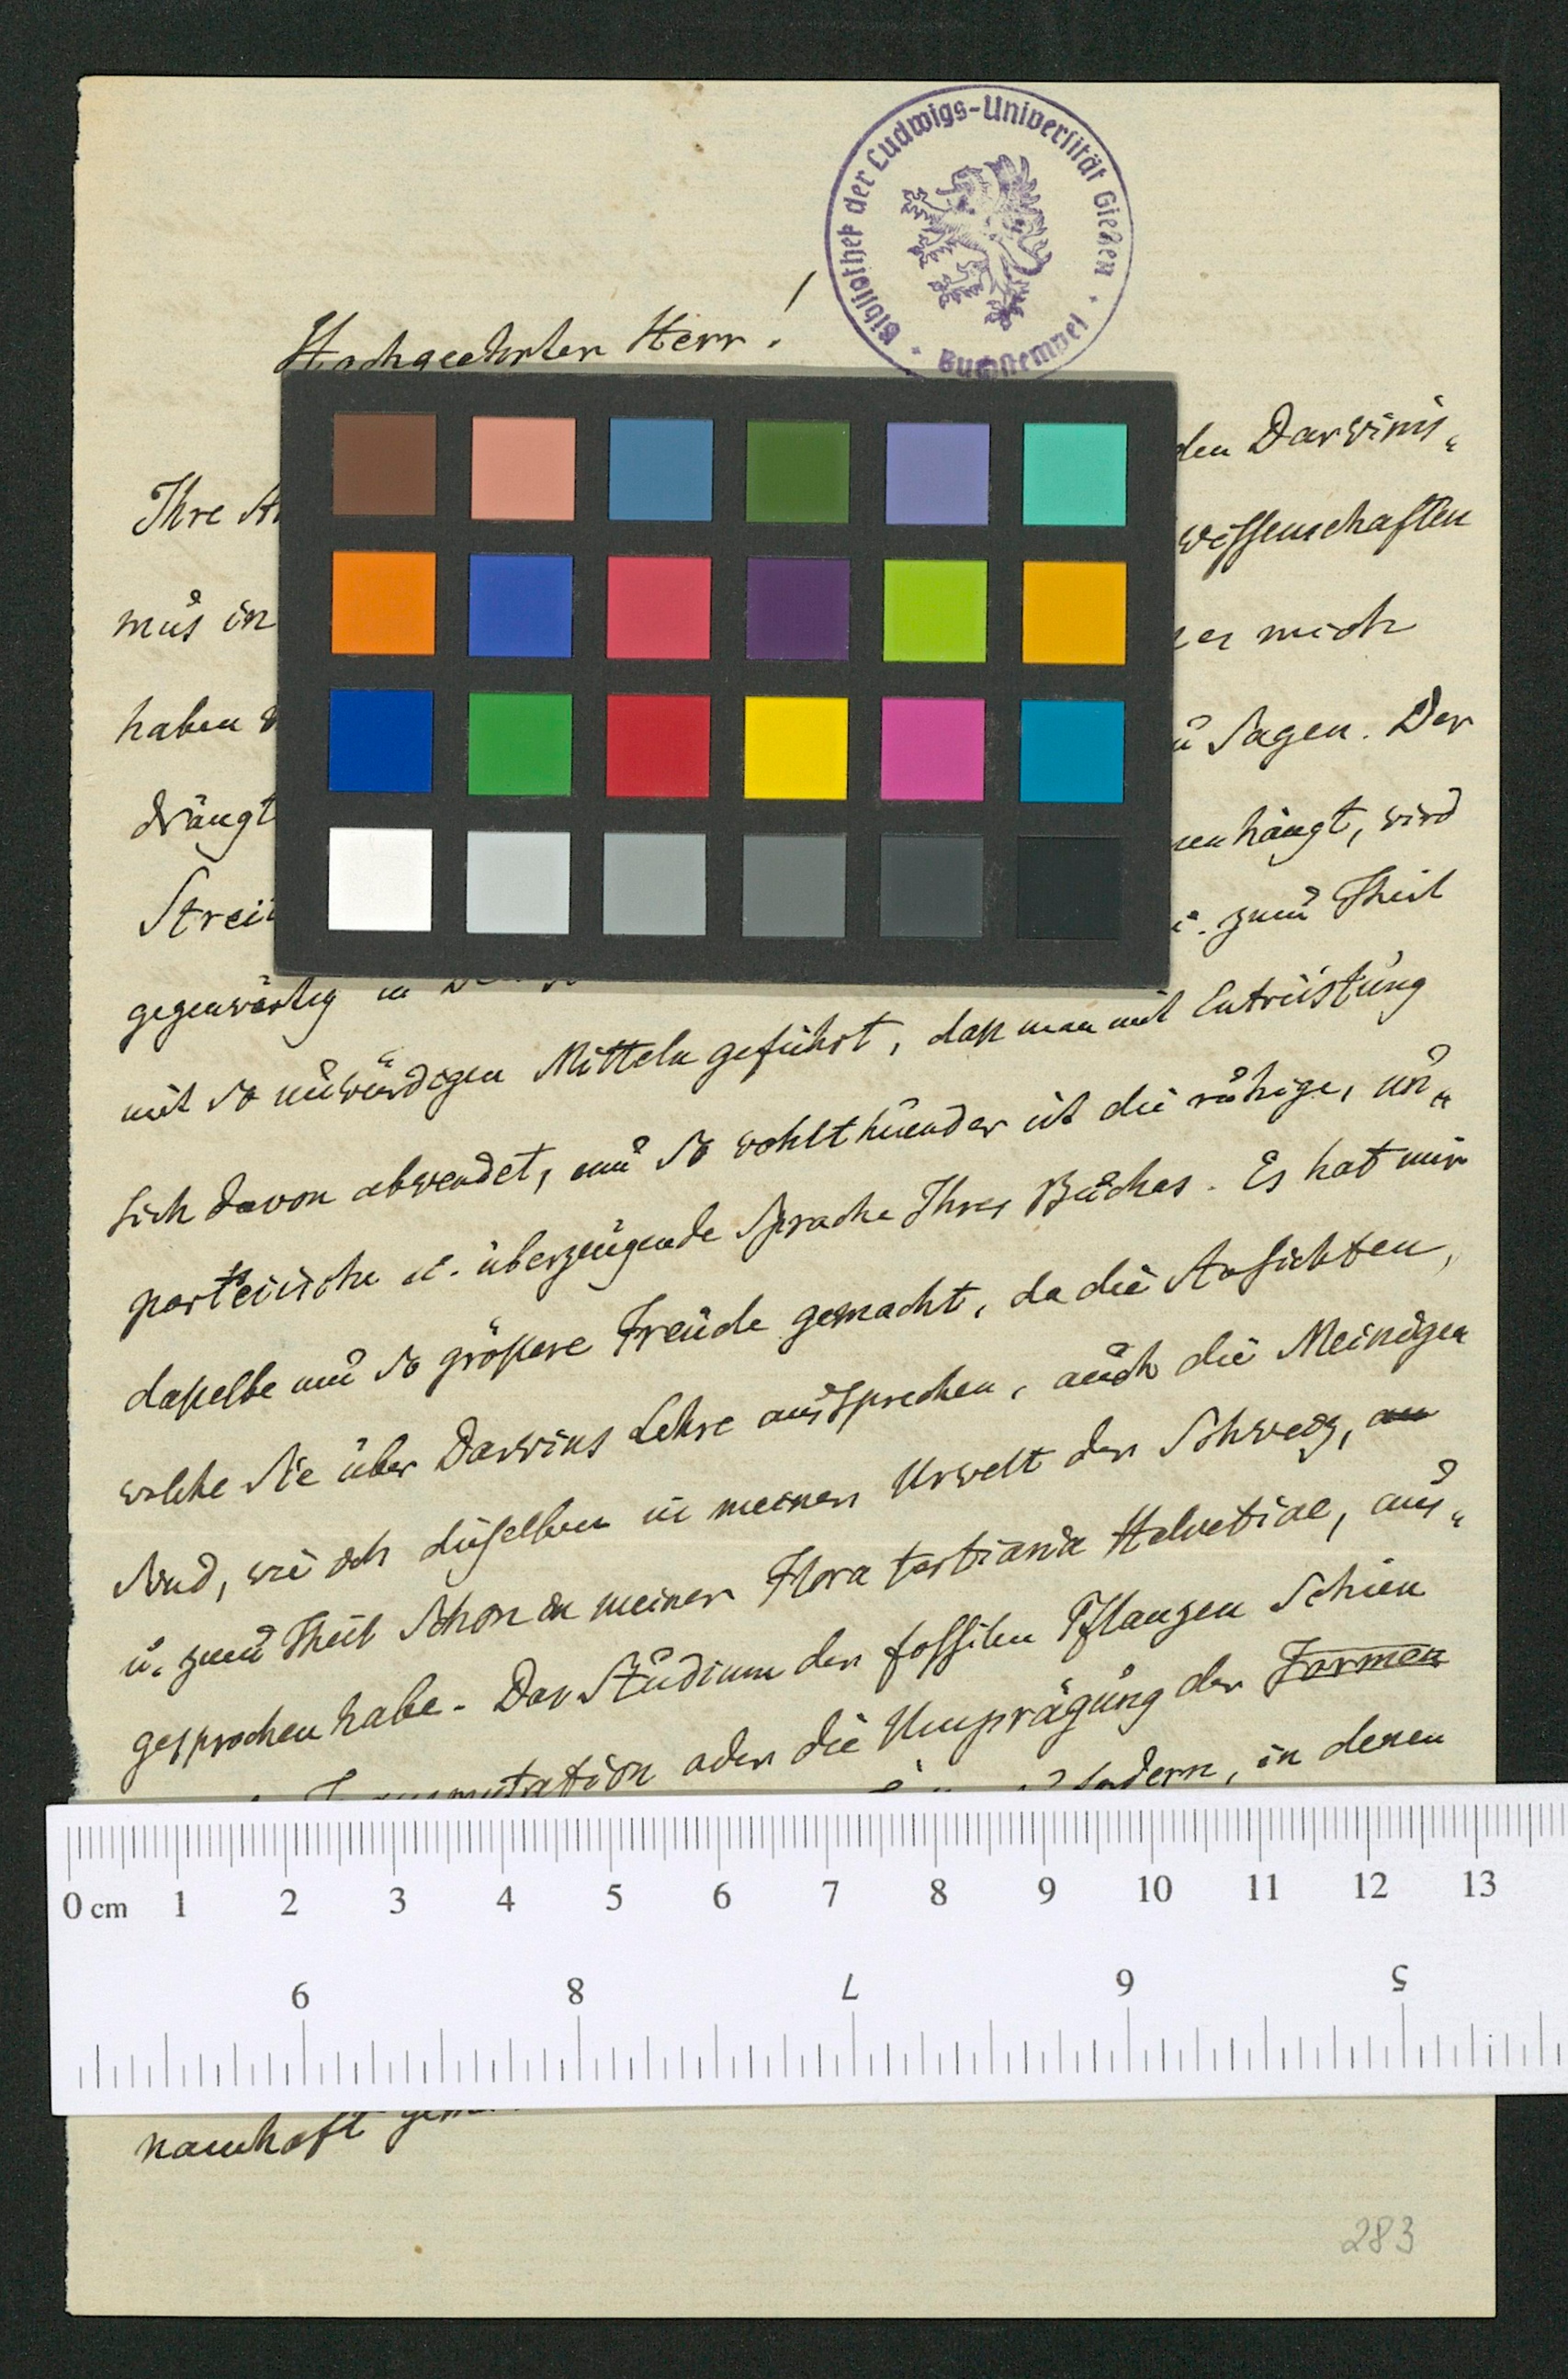 Bibliothek der Ludwigs-Universität Gießen · Buchstempel ·
Hochgeehrter Herr!
Ihre
den Darwinis„
mus in
wissenschaften
haben
mich
drängt
zu sagen. Der
Strei
hängt, wird
gegenwärtig in
zum Theil
mit so unwürdigen Mitteln geführt, dass man mit Entrüstung
sich davon abwendet, um so wohlthuender ist die ruhige, un„
parteiische u. überzeugende Sprache Ihres Buches. Es hat mir
dasselbe um so grössere Freude gemacht, da die Ansichten,
welche Sie über Darwins Lehre aussprechen, auch die Meinigen
sind, wie ich dieselben in meiner Urwelt der Schweiz, an
u. zum Theil schon in meiner Flora tertiaria Helvetiae, aus„
gesprochen habe. Das Studium der fossilen Pflanzen schien
Transmutation oder die Umprägung der Formen
fodern, in denen
namhaft
0 cm 1 2 3 4 5 6 7 8 9 10 11 12 13
9 8 7 6 5
283